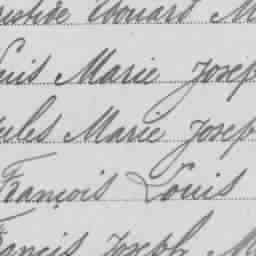 Edouard M
Louis Marie Josep
Jules Marie Josep
François Louis
Francis Joseph M